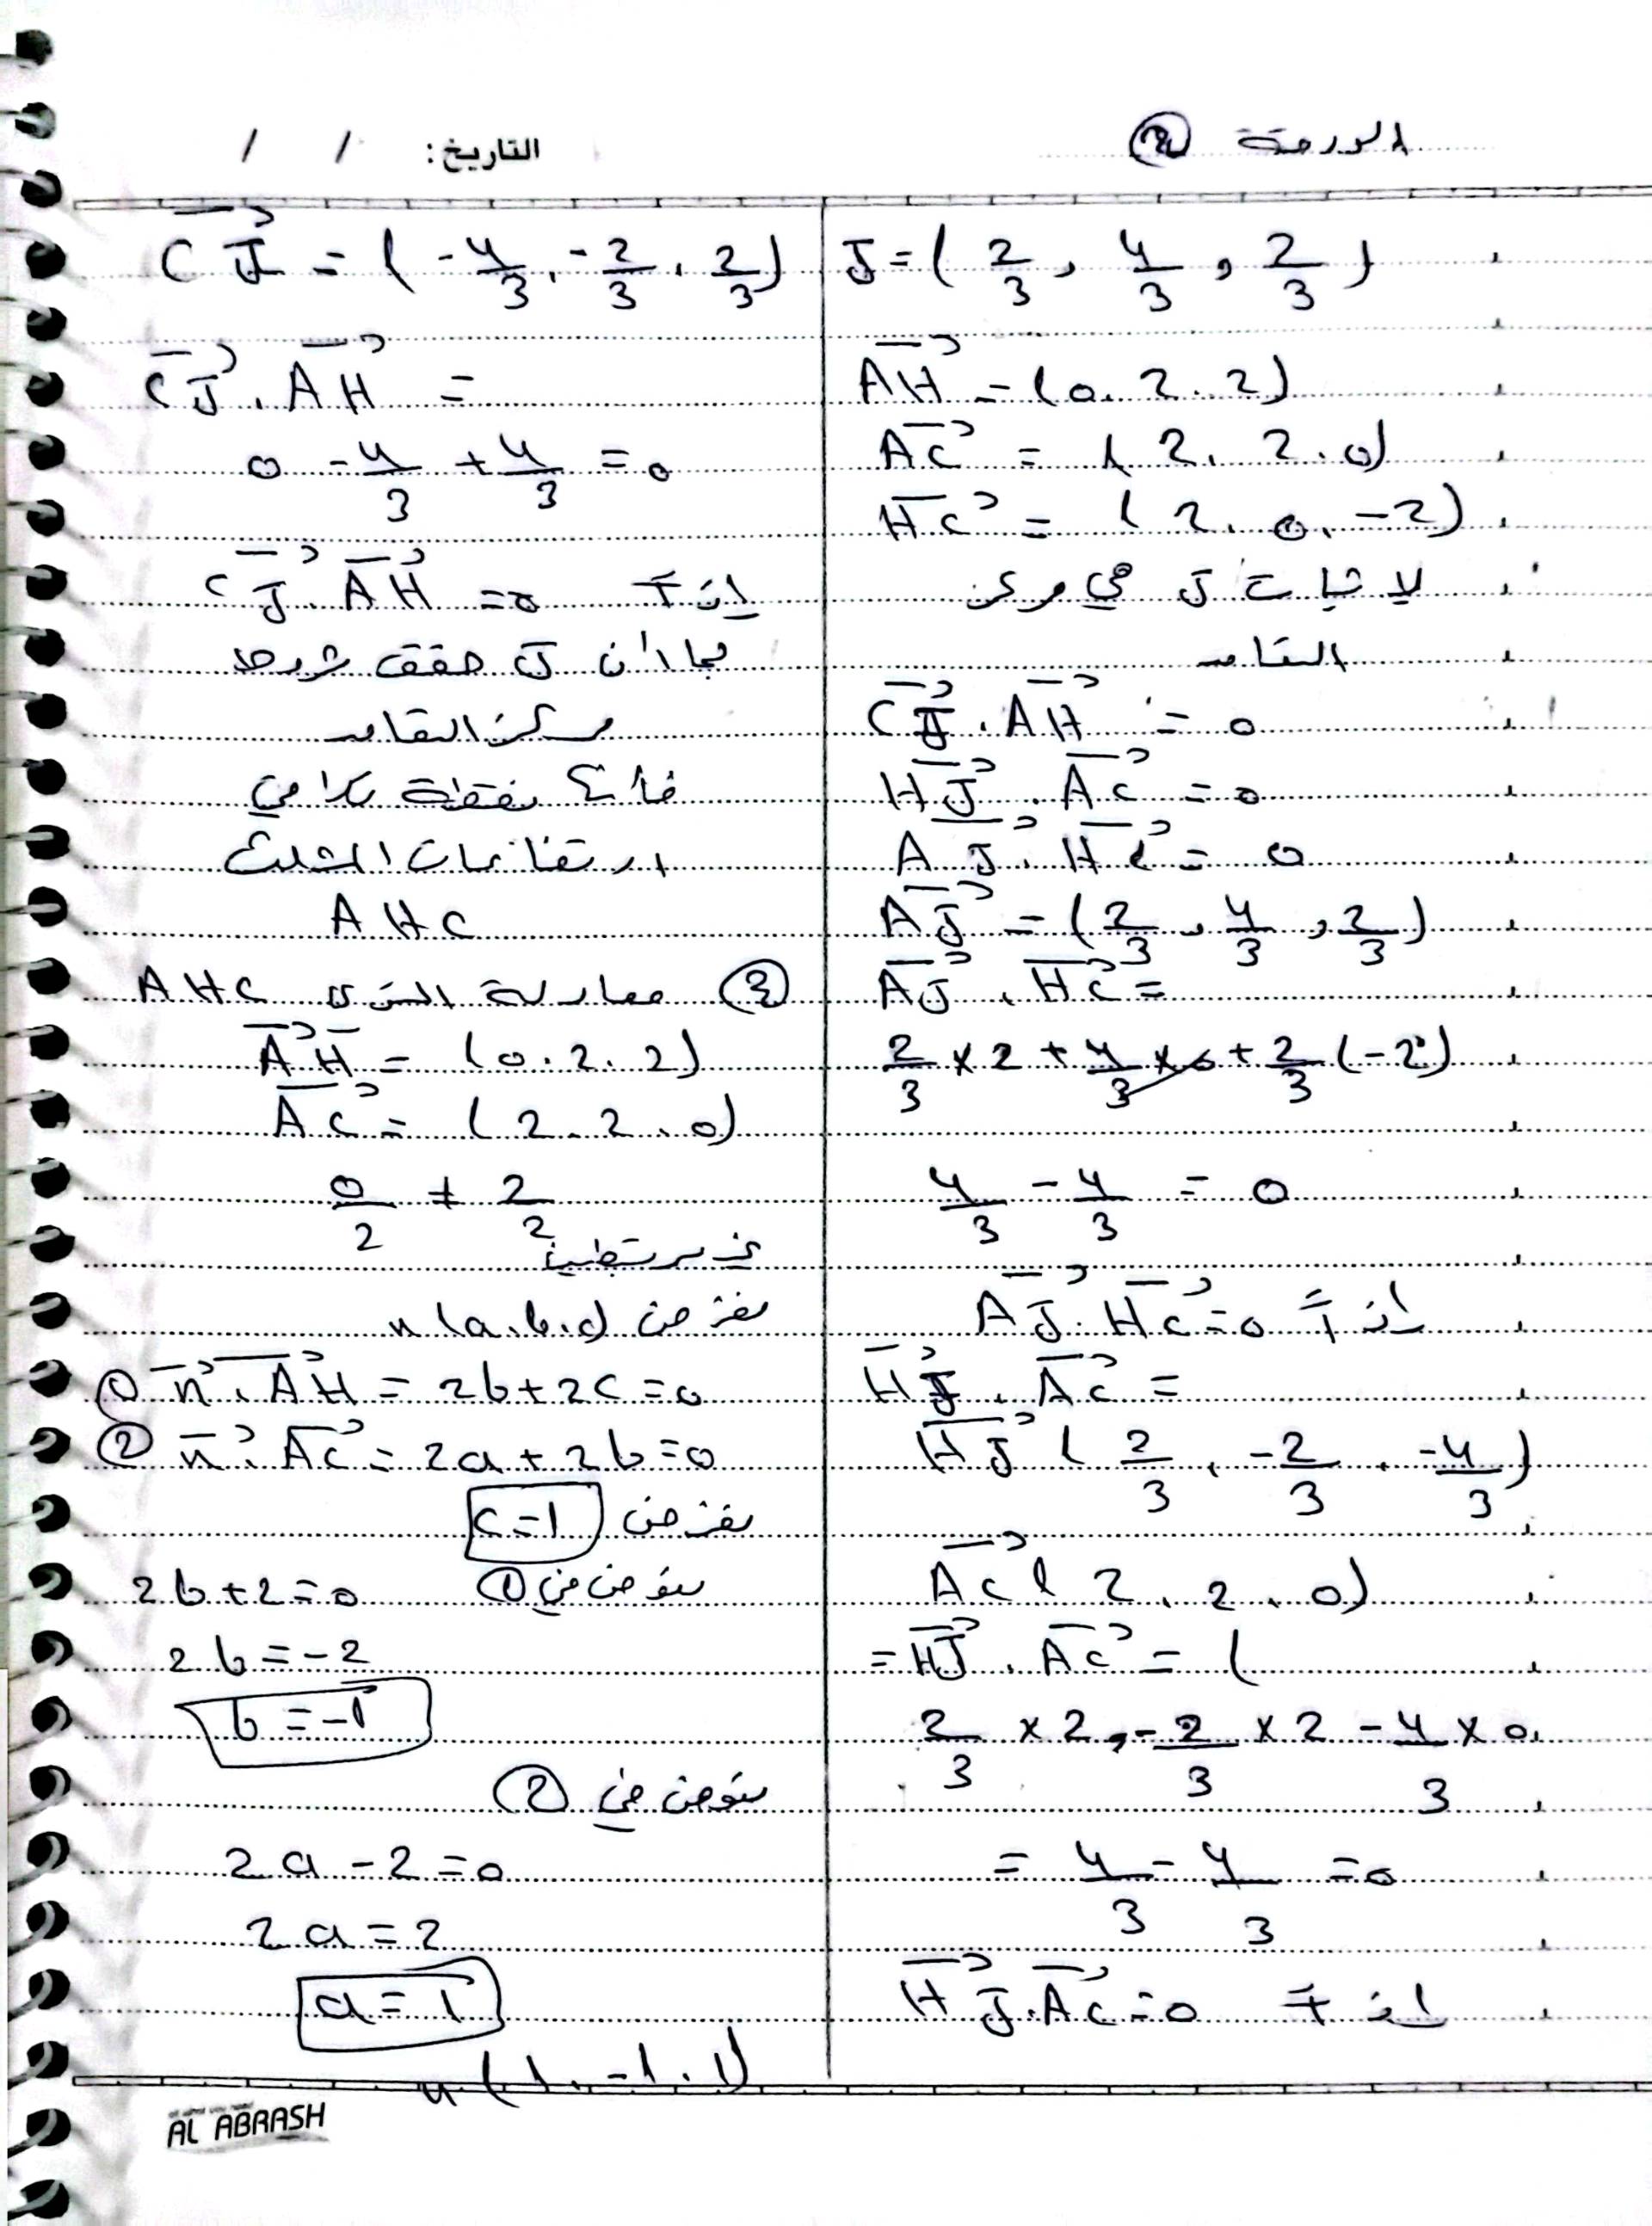 الورقة ②
التاريخ: / /
J = ( 2/3 , 4/3 , 2/3 )
AH = (0. 2. 2)
AC = ( 2. 2. 0)
HC = ( 2. 0. -2)
لاثبات J هي مركز
التقامد
CJ . AH = 0
HJ . AC = 0
AJ . HC = 0
AJ = ( 2/3 , 4/3 , 2/3 )
AJ . HC =
2/3 × 2 + 4/3 × 0 + 2/3 (-2)
4/3 - 4/3 = 0
اذاً AJ . HC = 0
HJ . AC =
HJ ( 2/3 , -2/3 , -4/3 )
AC ( 2 , 2 , 0)
= HJ . AC = (
2/3 × 2 , -2/3 × 2 - 4/3 × 0
= 4/3 - 4/3 = 0
اذاً HJ . AC = 0
CJ = ( -4/3 , -2/3 , 2/3 )
CJ . AH =
0 - 4/3 + 4/3 = 0
إذاً CJ . AH = 0
بما أن J حقق شرط
مركز التقامد
نقطة تلاقي
ارتفاعات المثلث
AHC
③ معادلة المستوي AHC
AH = (0. 2. 2)
AC = ( 2. 2. 0)
0/2 ≠ 2/2
غير مرتبطين
نفرض n (a. b. c)
① n . AH = 2b + 2c = 0
② n . AC = 2a + 2b = 0
نفرض c = 1
نعوض في ① 2b + 2 = 0
2b = -2
b = -1
نعوض في ②
2a - 2 = 0
2a = 2
a = 1
n (1. -1. 1)
AL ABRASH